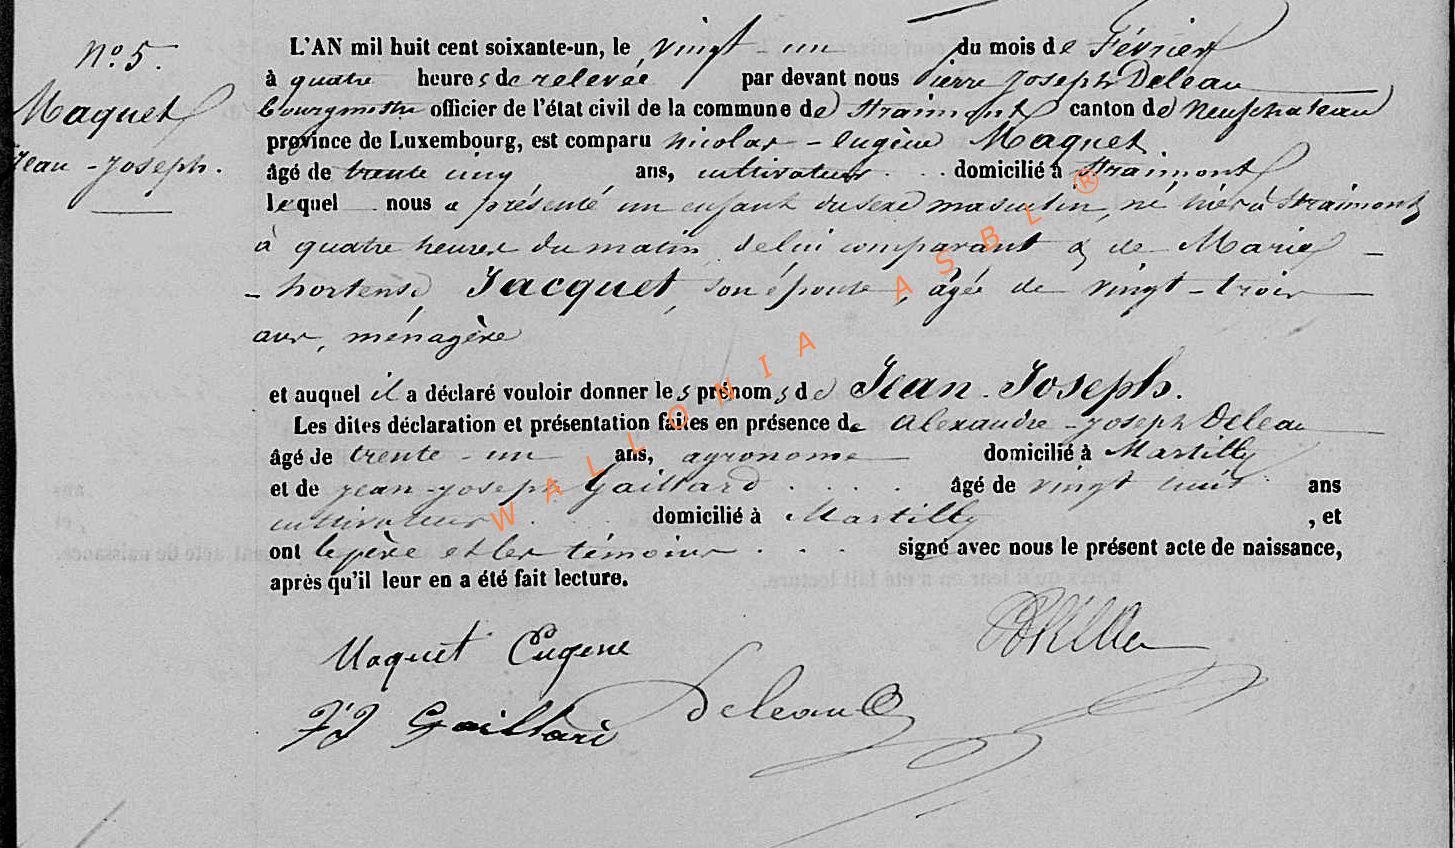 N° 5.
Maquet
Jean-Joseph.
L'AN mil huit cent soixante-un, le vingt un du mois de Février
à quatre heures de relevée par devant nous Pierre Joseph Deleau
bourgmestre officier de l'état civil de la commune de Straimont canton de Neufchateau
province de Luxembourg, est comparu nicolas-eugène Maquet
âgé de trente cinq ans, cultivateur . . domicilié à Straimont
lequel nous a présenté un enfant du sexe masculin, né hier à Straimont
à quatre heures du matin, de lui comparant & de Marie-
-hortense Jacquet, son épouse, âgée de vingt-trois
ans, ménagère
et auquel il a déclaré vouloir donner les prénoms de Jean-Joseph.
Les dites déclaration et présentation faites en présence de alexandre-joseph Deleau
âgé de trente-un ans, agronome domicilié à Martilly
et de jean-joseph Gaillard . . . . âgé de vingt huit ans
cultivateur . . . domicilié à Martilly , et
ont le père et les témoins . . . signé avec nous le présent acte de naissance,
après qu'il leur en a été fait lecture.
Maquet Eugene
JJ Gaillard Deleau
WALLONIA ASBL ®